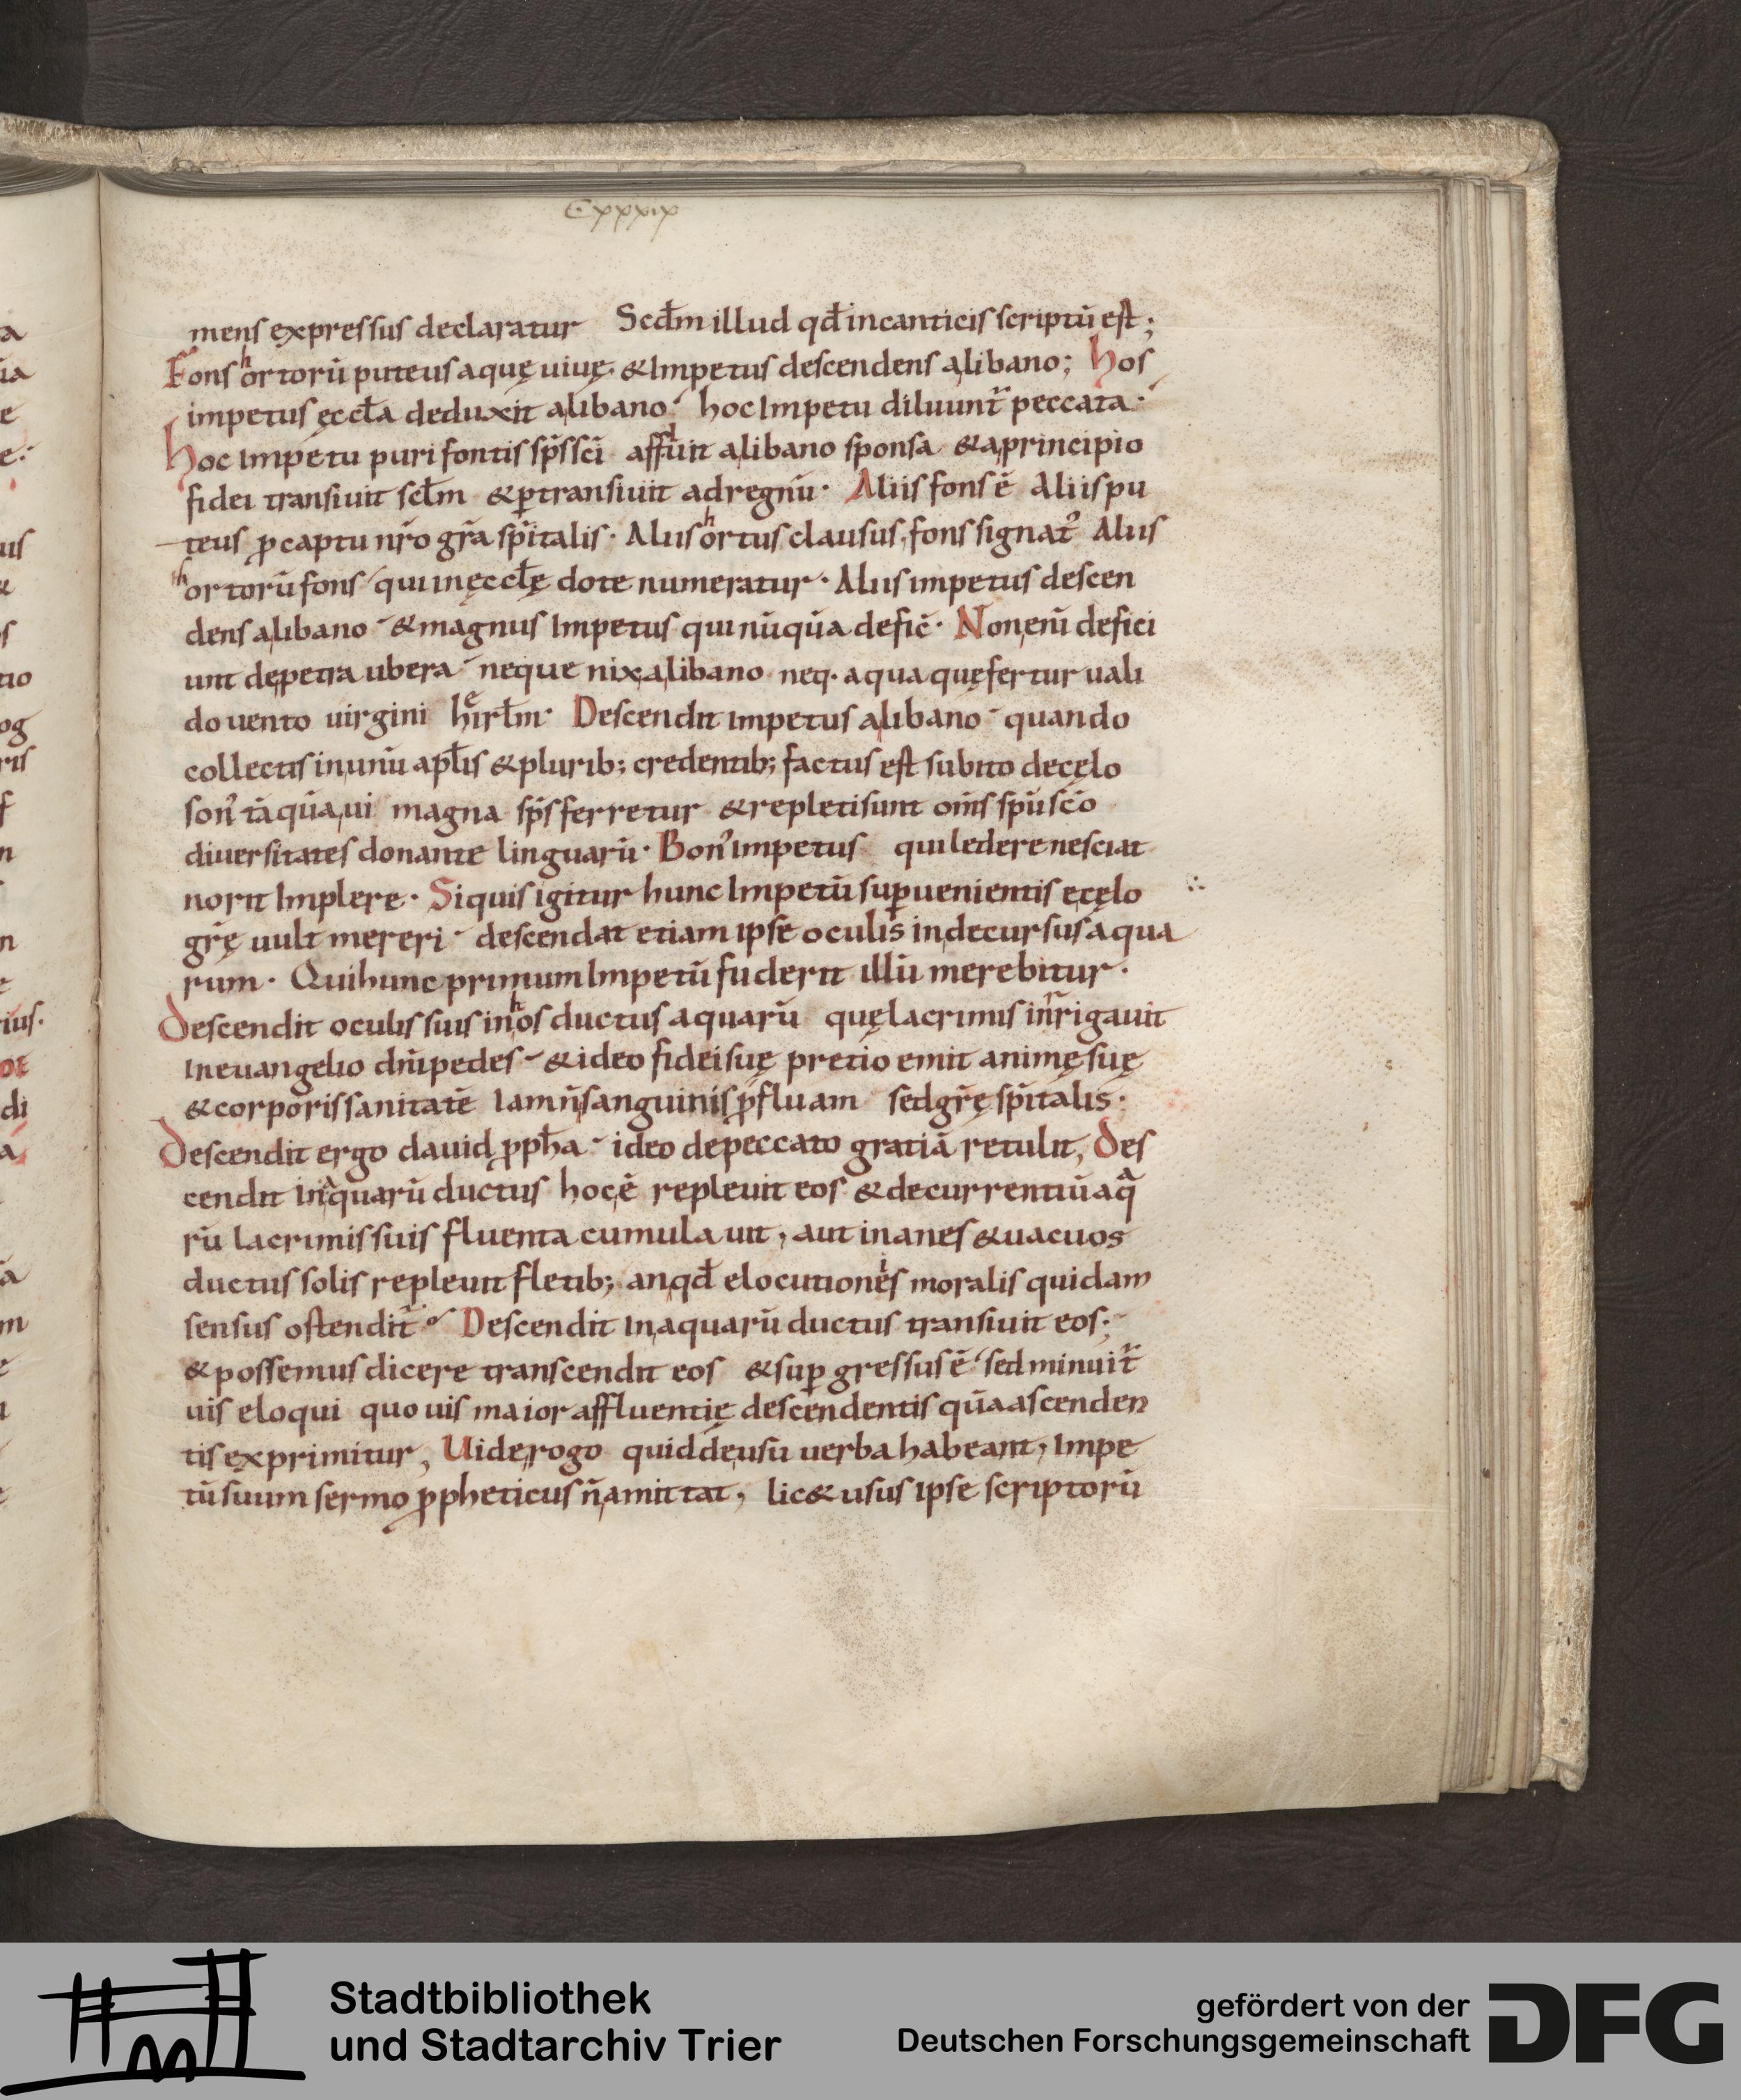 Cxxxix
mens expressus declaratur Scd̄m illud qd̄ in canticis scriptū est;
Fons hortorū puteus aquę uiuę. & Impetus descendens a libano; Hos
impetus ęccl̄a deduxit a libano. hoc Impetu diluunt̄ peccata.
Hoc Impetu puri fontis sp̄s sc̄i affuit a libano sponsa & a principio
fidei transiuit scl̄m & ptransiuit ad regnū. Aliis fons ē Aliis pu
teus p captu nr̄o gr̄a sp̄italis. Aliis hortus clausus, fons signat᾽ Aliis
hortorū fons qui in ęccl̄ę dote numeratur. Aliis impetus descen
dens a libano & magnus Impetus qui nūqūa defic̄. Non enī defici
unt de petra ubera neque nix a libano neq. aqua quę fertur uali
do uento uirgini hierl̄m. Descendit impetus a libano quando
collectis in unū apl̄is & plurib; credentib; factus est subito de cęlo
son᾽ tāqūa ui magna sp̄s ferretur & repleti sunt om̄s sp̄u sc̄o
diuersitates donante linguarū. Bon᾽ impetus qui ledere nesciat
norit Implere. Siquis igitur hunc Impetū supuenientis e cęlo
gr̄ę uult mereri descendat etiam ipse oculis in decursus aqua
rum. Qui hunc primum Impetū fuderit illū merebitur.
Descendit oculis suis in hos ductus aquarū quę lacrimis inrigauit
In euangelio dn̄i pedes & ideo fidei suę pretio emit animę suę
& corporis sanitatē Iam n̄ sanguinis pfluam sed gr̄ę sp̄italis.
Descendit ergo dauid ppha ideo de peccato gratiā retulit, Des
cendit in aquarū ductus hoc ē repleuit eos & decurrentiū aq̄
rū lacrimis suis fluenta cumulauit, aut inanes & uacuos
ductus solis repleuit fletib; an qd̄ elocutionis moralis quidam
sensus ostendit̄ Descendit in aquarū ductus transiuit eos;
& possemus dicere transcendit eos & sup gressus ē sed minuit̄
uis eloqui quo uis maior affluentię descendentis qūa ascenden
tis exprimitur, Uide rogo quid de usu uerba habeant, Impe
tū suum sermo ppheticus n̄ amittat, lic& usus ipse scriptorū
Stadtbibliothek
und Stadtarchiv Trier
gefördert von der
Deutschen Forschungsgemeinschaft
DFG